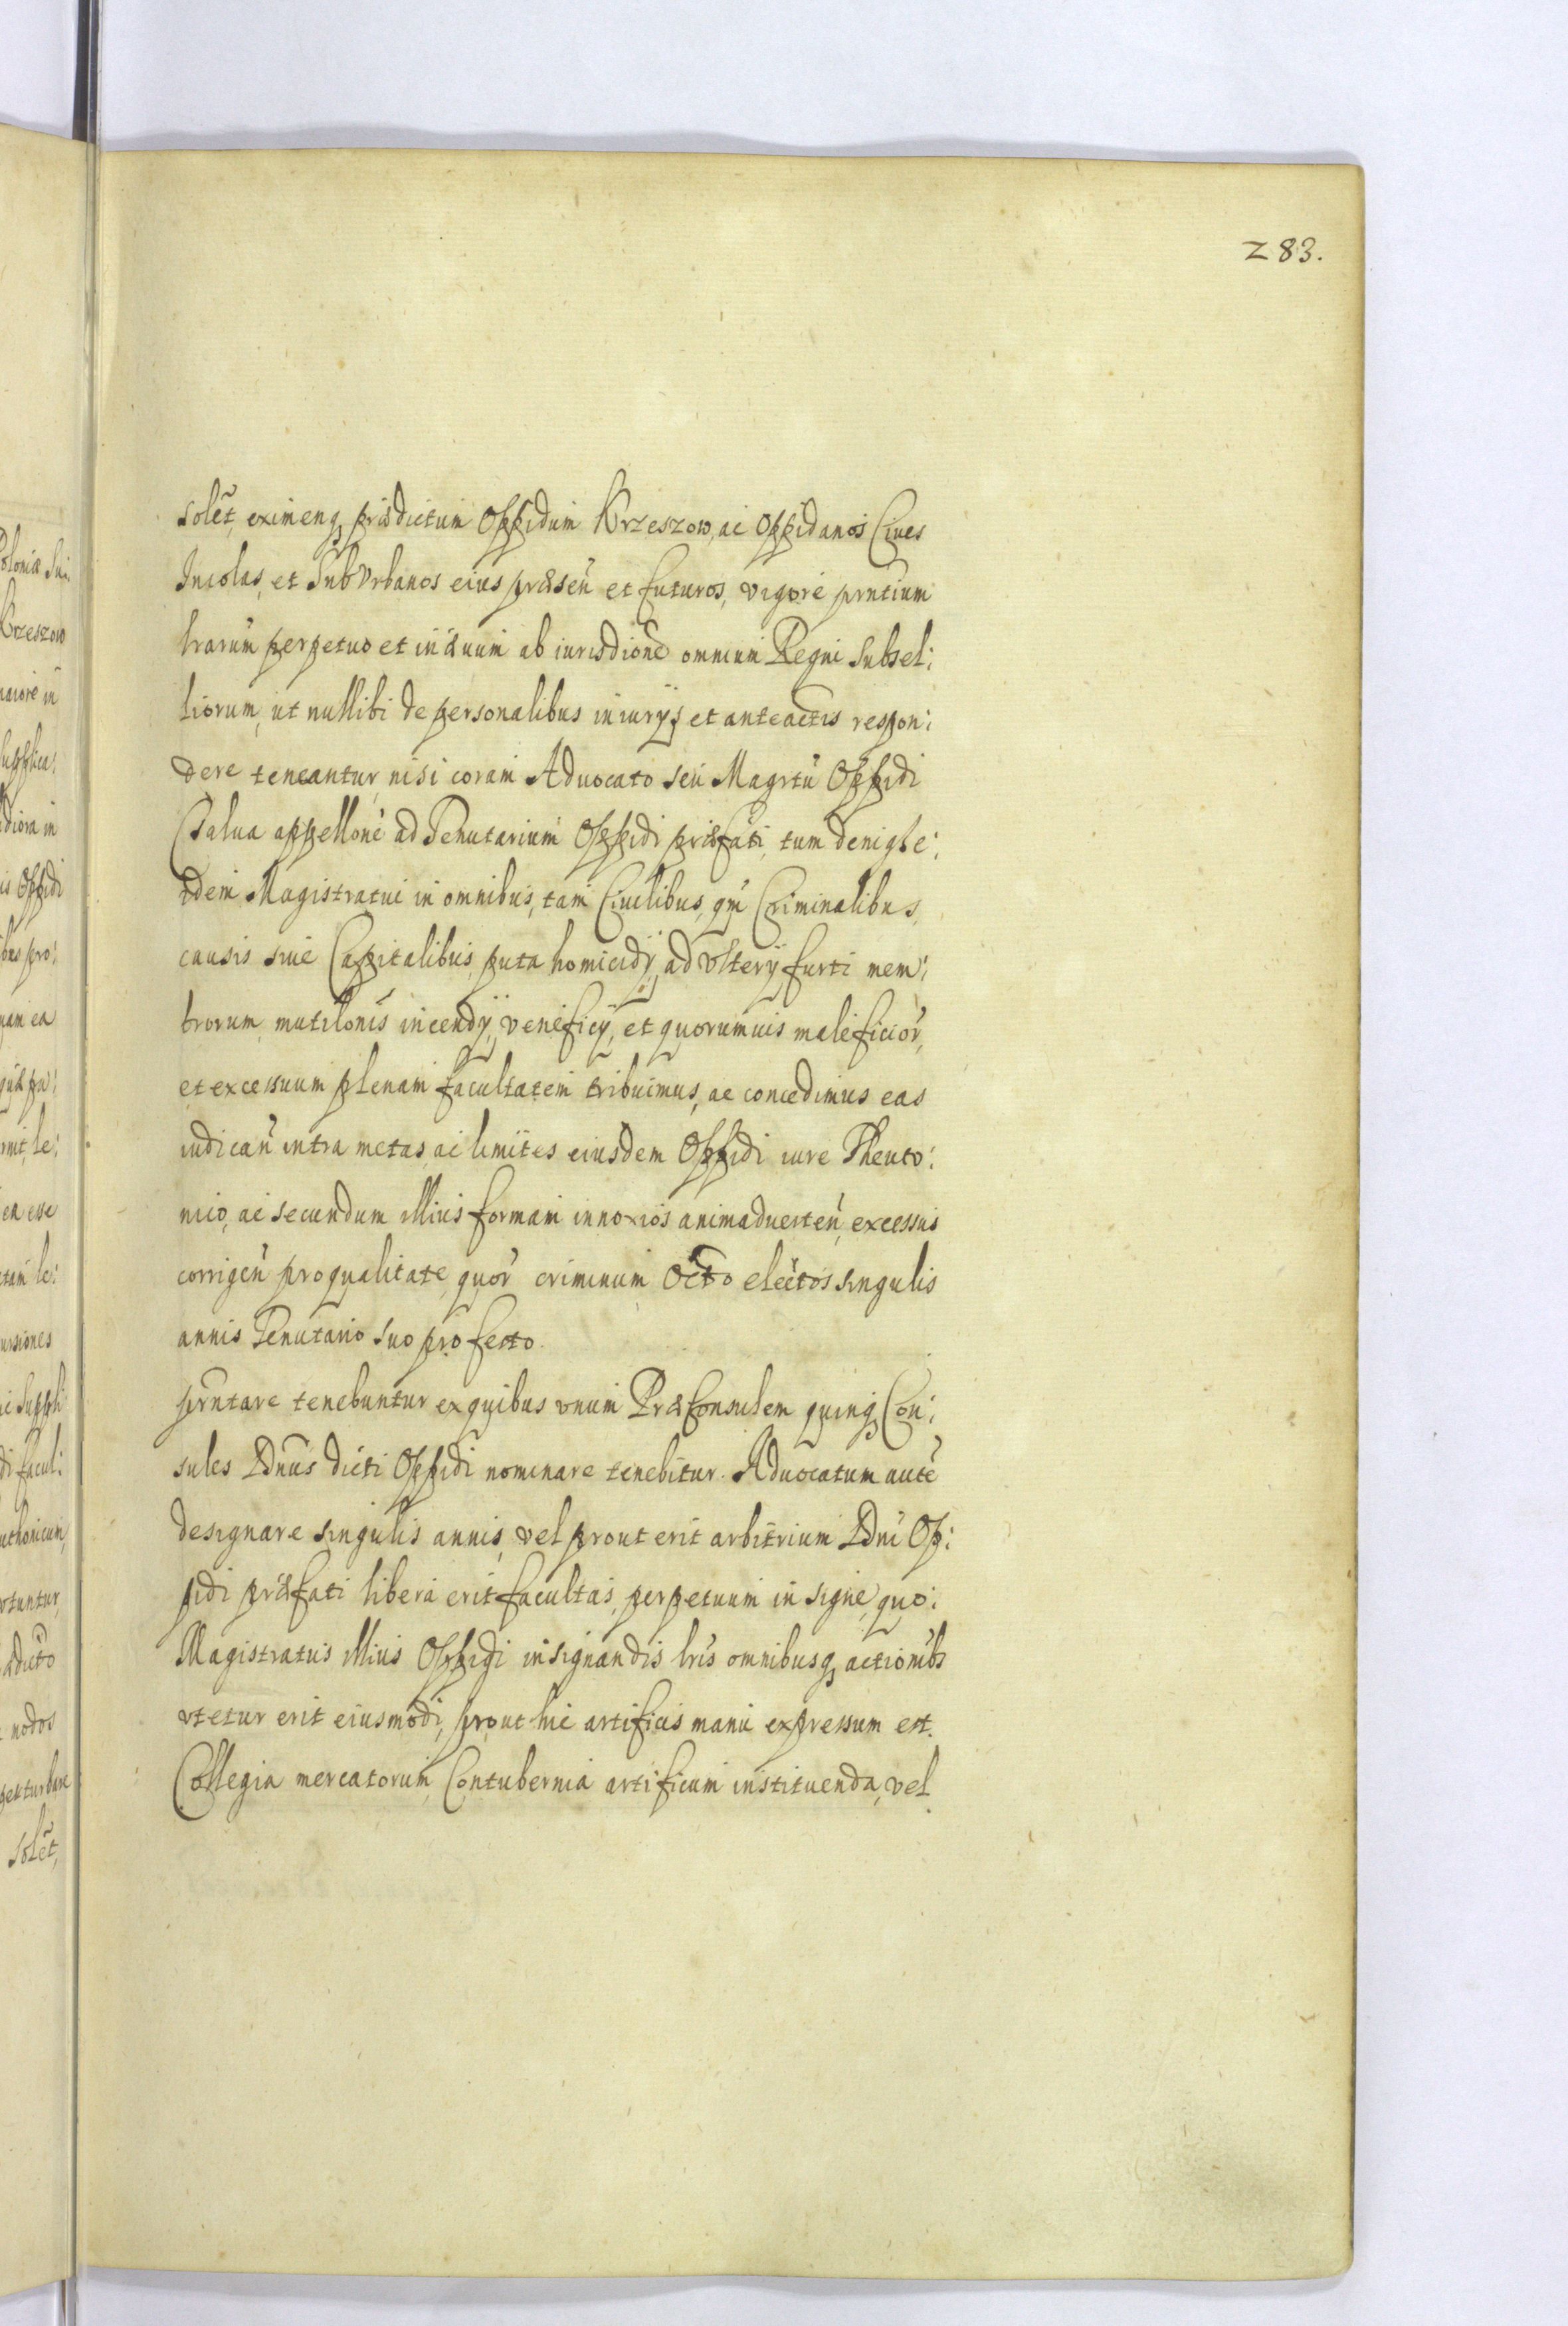 283.
solet̃, eximenq, prædictum Oppidum Krzeszow, ac Oppidanos Ciues
Incolas, et SubVrbanos eius præsen̄ et futuros, vigore prntium
lrarum̃ perpetuo et in æuum ab iurisdione omnium Regni Subsel:
liorum, ut nullibi de personalibus iniurijs et anteactis respon:
dere teneantur, nisi coram Aduocato seu Magrtũ Oppidi
Salua appellone ad Tenutarium Oppidi præfati, tum deniq3 e:
idem Magistratui in omnibus, tam Ciuilibus, qm̃ Criminalibus,
causis siue Capitalibus, puta homicidij, adVlterij, furti mem:
brorum, mutilonis incendij, veneficij, et quorumuis maleficior̃,
et excessuum plenam facultatem tribuimus, ac concedimus eas
iudican̄ intra metas, ac limites eiusdem Oppidi iure Theuto:
nico, ac secundum illius formam innoxios animaduerten̄, excessus
corrigen̄ pro qualitate, quor̃ criminum Octo electos singulis
annis Tenutario suo pro festo
prntare tenebuntur ex quibus vnum PræConsulem quinq, Con:
sules Dnus dicti Oppidi nominare tenebitur. Aduocatum autẽ
designare singulis annis, vel prout erit arbitrium Dni Op:
pidi præfati libera erit facultas, perpetuum in signe, quo:
Magistratus illius Oppidi insignandis lris omnibusq, actionibs
vtetur erit eiusmodi, prout hic artificis manu expressum est.
Collegia mercatorum, Contubernia artificum instituenda, vel